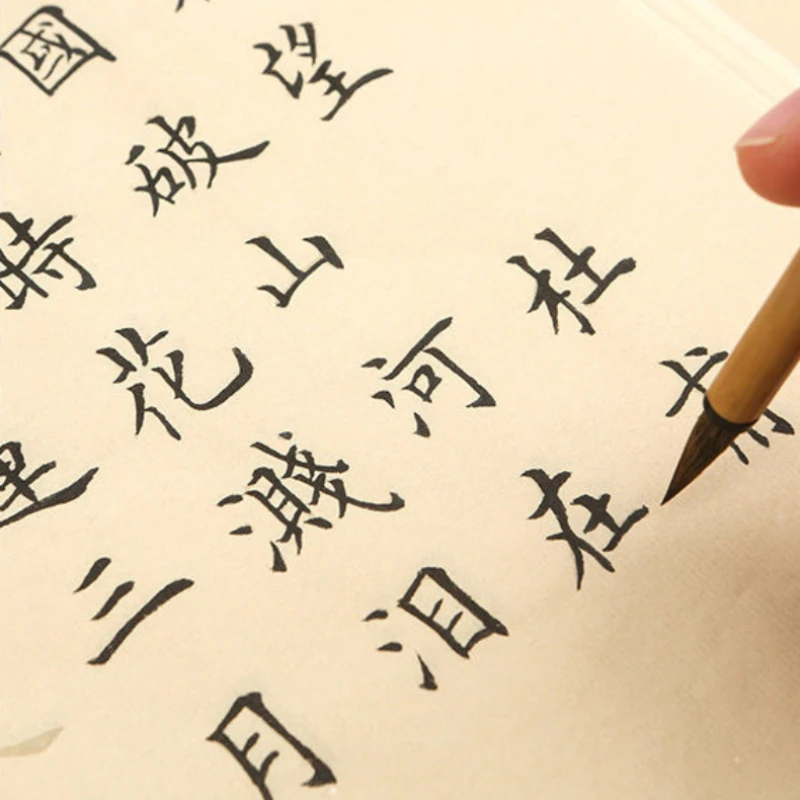 望 杜
國破山河在
時花濺泪
連三月